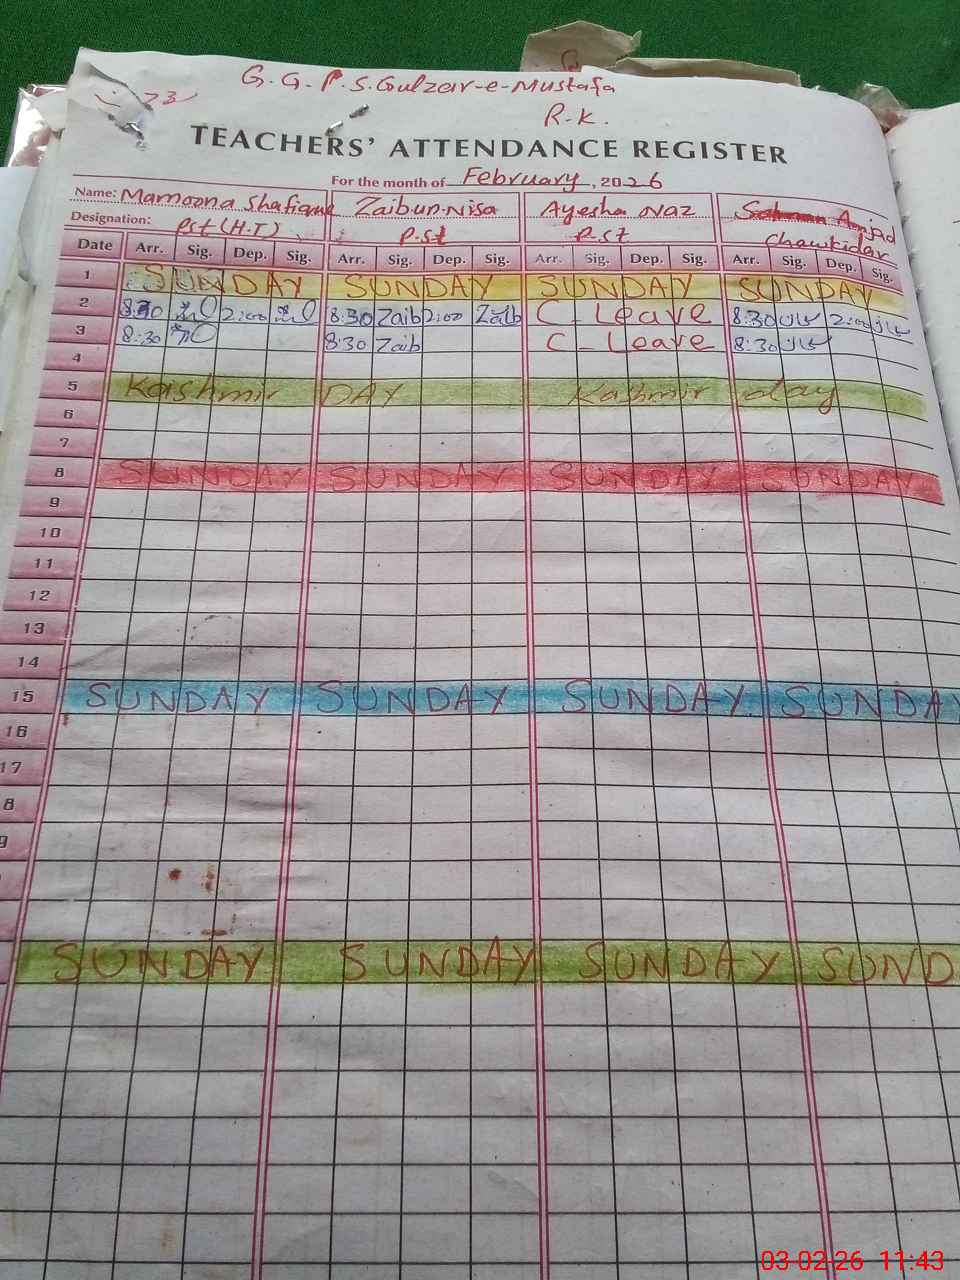 G.G.P.S.Gulzar-e-Mustafa
R-K.
TEACHERS' ATTENDANCE REGISTER
For the month of February, 2026
Name: Mamoona Shafique Zaibun-Nisa Ayesha Naz Amjad
Designation: Pst (H.T) P.st P.st Chawkidar
Date Arr. Sig. Dep. Sig. Arr. Sig. Dep. Sig. Arr. Sig. Dep. Sig. Arr. Sig. Dep. Sig.
1 SUNDAY SUNDAY SUNDAY SUNDAY
2 8:30 2:00 8:30 Zaib 2:00 Zaib C - Leave 8:30 2:00
3 8:30 8:30 Zaib C - Leave 8:30
4
5 Kashmir DAY Kashmir day
6
7
8 SUNDAY SUNDAY SUNDAY SUNDAY
9
10
11
12
13
14
15 SUNDAY SUNDAY SUNDAY SUNDAY
16
17
8
9
SUNDAY SUNDAY SUNDAY SUND
03-02-26 11:43